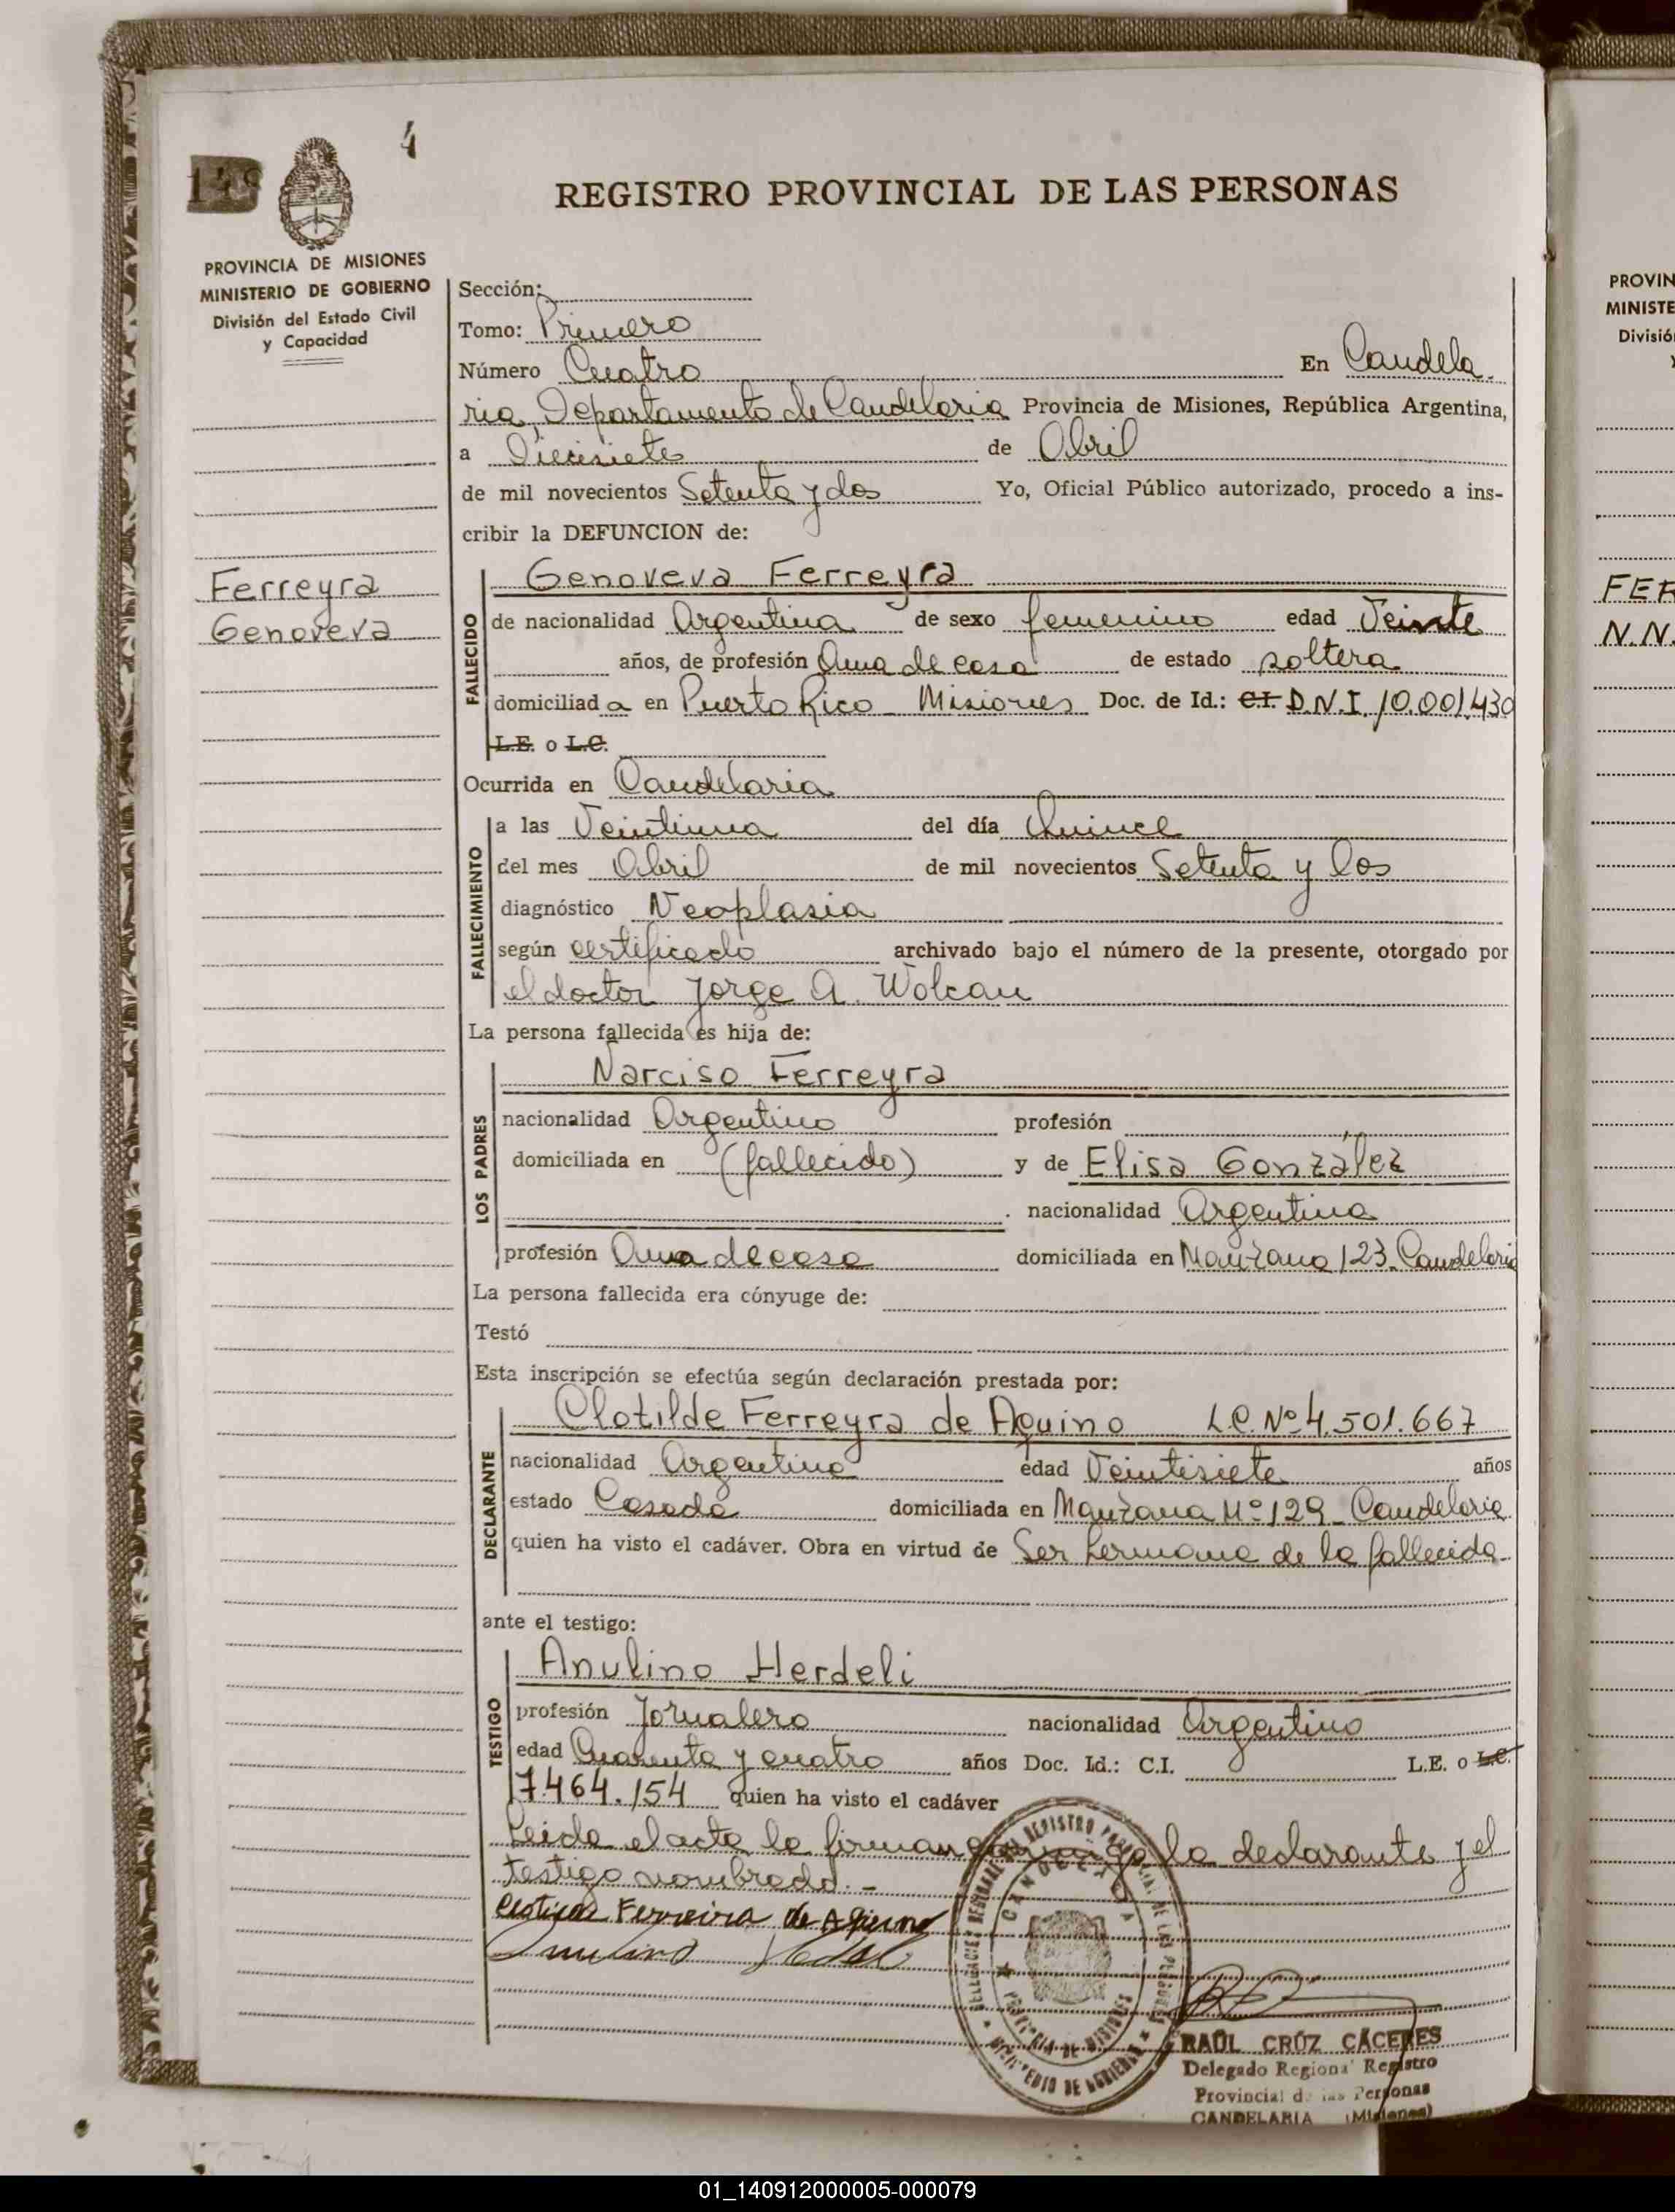 4
149
REGISTRO PROVINCIAL DE LAS PERSONAS
PROVINCIA DE MISIONES
MINISTERIO DE GOBIERNO
División del Estado Civil
y Capacidad
Ferreyra
Genoveva
Sección:
Tomo: Primero
Número Cuatro En Candela
ria, Departamento de Candelaria Provincia de Misiones, República Argentina,
a Diecisiete de Abril
de mil novecientos Setenta y dos Yo, Oficial Público autorizado, procedo a ins-
cribir la DEFUNCION de:
FALLECIDO
Genoveva Ferreyra
de nacionalidad Argentina de sexo femenino edad Veinte
años, de profesión Ama de casa de estado soltera
domiciliad a en Puerto Rico - Misiones Doc. de Id.: C.I. D.N.I. 10.001.430
L.E. o L.C.
Ocurrida en Candelaria
FALLECIMIENTO
a las Veintiuna del día Quince
del mes Abril de mil novecientos Setenta y dos
diagnóstico Neoplasia
según certificado archivado bajo el número de la presente, otorgado por
el doctor Jorge A. Wolcan
La persona fallecida es hija de:
LOS PADRES
Narciso Ferreyra
nacionalidad Argentino profesión
domiciliada en (fallecido) y de Elisa González
nacionalidad Argentina
profesión Ama de casa domiciliada en Manzana 123 Candelaria
La persona fallecida era cónyuge de:
Testó
Esta inscripción se efectúa según declaración prestada por:
DECLARANTE
Clotilde Ferreyra de Aquino L.C. Nº 4.501.667
nacionalidad Argentina edad Veintisiete años
estado Casada domiciliada en Manzana Nº 129 - Candelaria
quien ha visto el cadáver. Obra en virtud de Ser hermana de la fallecida
ante el testigo:
TESTIGO
Anulino Herdeli
profesión Jornalero nacionalidad Argentino
edad Cuarenta y cuatro años Doc. Id.: C.I. L.E. o L.C.
7.464.154 quien ha visto el cadáver
Leida el acta la firman conmigo la declarante y el
testigo nombrado. -
Ferreira de Aquino
RAUL CRUZ CACERES
Delegado Regional Registro
Provincial de las Personas
CANDELARIA (Misiones)
PROVIN
MINISTE
Divisió
FER
N.N.
01_140912000005-000079